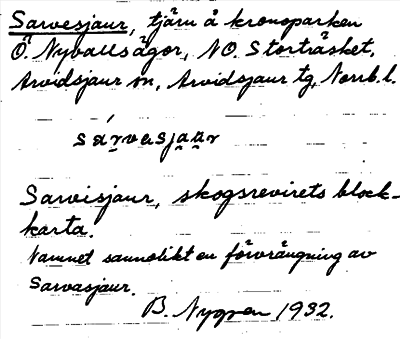 Sarvesjaur, tjärn å kronoparken
Ö. Nyvallsågor, NO. Storträsket,
Arvidsjaur sn, Arvidsjaur tg, Norrb. l.
sárvasjaur
Sarvisjaur, skogsrevirets block-
karta.
Namnet sannolikt en förvrängning av
Sarvasjaur.
B. Nygren 1932.